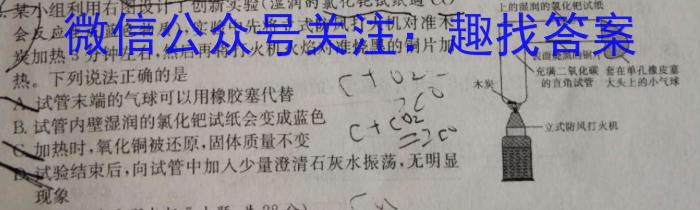 某小组利用右图设计了创新实验(湿润的氯化钯试纸遇CO
会反应
微信公众号关注：趣找答案
炭加热3分钟左右,然后再将打火机火焰对准
的铜片加
热。下列说法正确的是
A. 试管末端的气球可以用橡胶塞代替
B. 试管内壁湿润的氯化钯试纸会变成蓝色
C. 加热时,氧化铜被还原,固体质量不变
D. 试验结束后,向试管中加入少量澄清石灰水振荡,无明显
现象
上的湿润的氯化钯试纸
充满二氧化碳
的直角试管
套在单孔橡皮塞
大头上的小气球
木炭
立式防风打火机
C+O2
2CO
C+CO2
=2CO